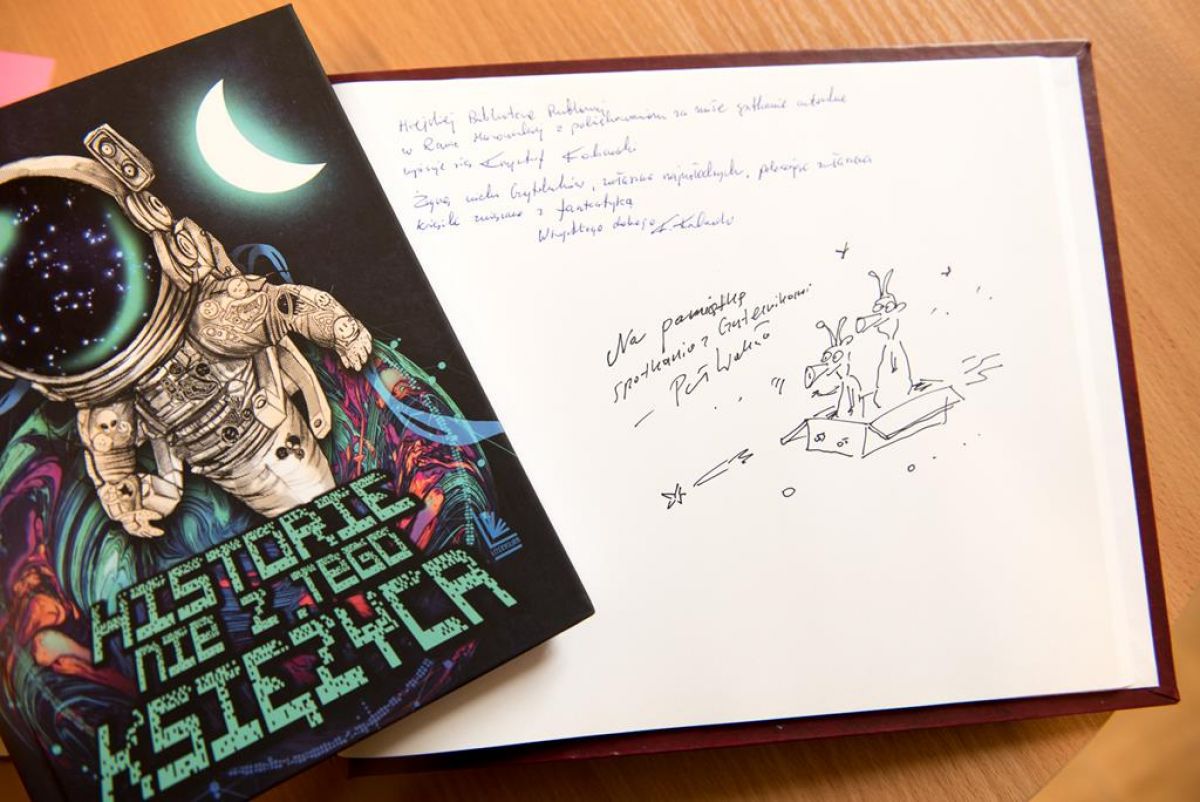 HISTORIE
NIE Z TEGO
KSIĘŻYCA
Miejskiej Bibliotece Publicznej
w Rawie Mazowieckiej z podziękowaniem za miłe spotkanie autorskie
wpisuje się Krzysztof
Życzę wielu Czytelników, zwłaszcza najmłodszych,
książki związane z fantastyką
Wszystkiego dobrego
Na pamiątkę
spotkania z Czytelnikami